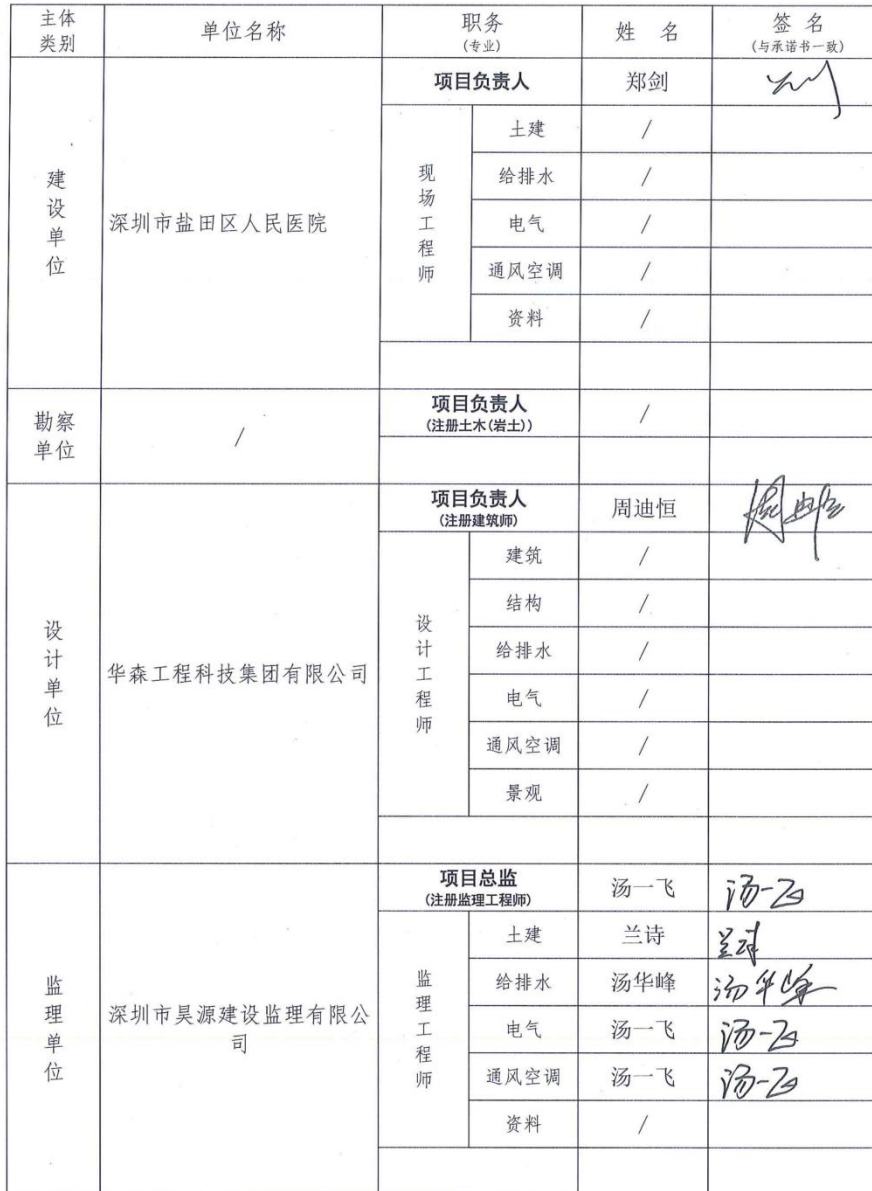 主体类别 单位名称 职务(专业) 姓 名 签 名(与承诺书一致)
建设单位 深圳市盐田区人民医院 项目负责人 郑剑
现场工程师 土建 /
给排水 /
电气 /
通风空调 /
资料 /
勘察单位 / 项目负责人(注册土木(岩土)) /
设计单位 华森工程科技集团有限公司 项目负责人(注册建筑师) 周迪恒
设计工程师 建筑 /
结构 /
给排水 /
电气 /
通风空调 /
景观 /
监理单位 深圳市昊源建设监理有限公司 项目总监(注册监理工程师) 汤一飞 汤一飞
监理工程师 土建 兰诗 兰诗
给排水 汤华峰 汤华峰
电气 汤一飞 汤一飞
通风空调 汤一飞 汤一飞
资料 /